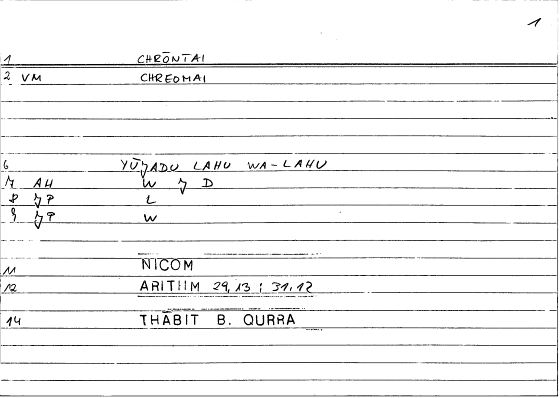 1
1 CHRŌNTAI
2 VM CHREOMAI
6 YŪǦADU LAHU WA-LAHU
AH W D
L
W
11 NICOM
12 ARITIIM 29,13 ; 31,12
14 THĀBIT B. QURRA